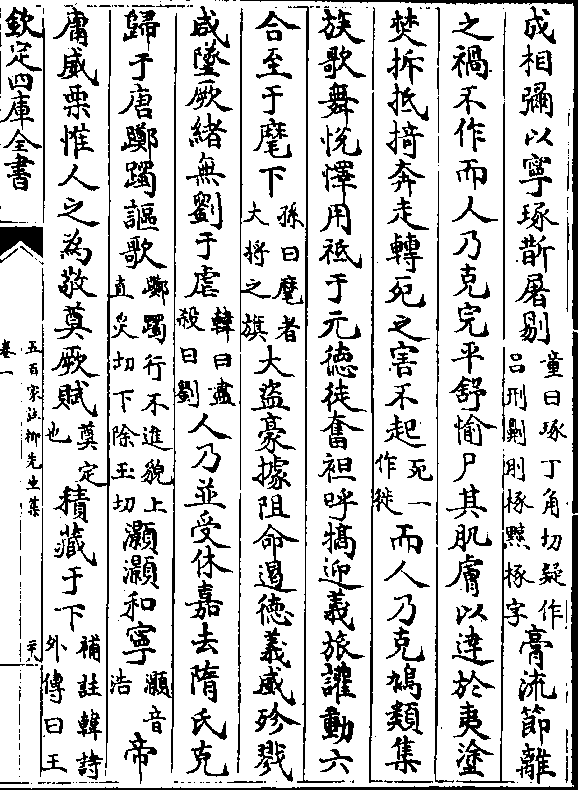 成相彌以寧琢斮屠剔童曰琢丁角切疑作呂刑劓刖椓黥椓字膏流節離
之禍不作而人乃克完平舒愉尸其肌膚以達於夷塗
焚拆抵掎奔走轉死之害不起死一作徙而人乃克鳩類集
族歌舞悅懌用祗于元德徒奮袒呼犒迎義旅讙動六
合至于麾下孫曰麾者大將之旗大盜豪據阻命遏德義威殄戮
咸墜厥緒無劉于虐韓曰盡殺曰劉人乃並受休嘉去隋氏克
歸于唐躑躅謳歌躑躅行不進貌上直炙切下除玉切灝灝和寧灝音浩帝
庸威栗惟人之為敬奠厥賦奠定也積藏于下補註韓詩外傳曰王
欽定四庫全書
五百家注柳先生集
卷一
二十八